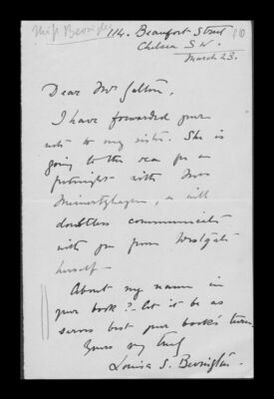 Miss Bevington
114. Beaufort Street
Chelsea S.W.
March 23.
Dear Mr Galton,
I have forwarded your
note to my sister. She is
going to the sea for a
fortnight with Mrs
Meinertzhagen, & will
doubtless communicate
with you from Westgate
herself.
About my name in
your book? - let it be as
serves best your book's turn.
Yours very truly
Louisa S. Bevington.